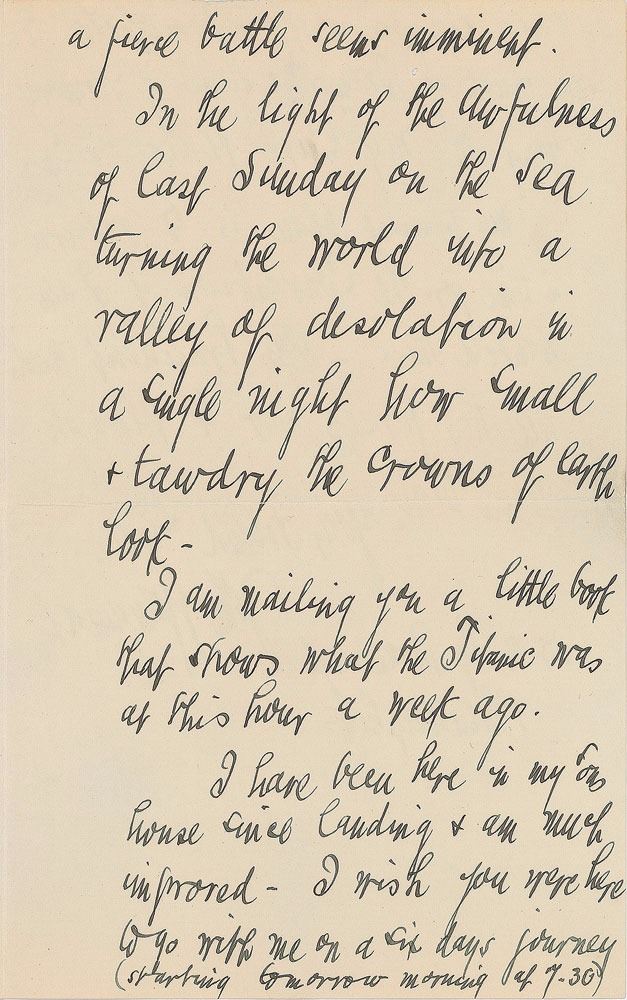 a fierce battle seems imminent.
In the light of the awfulness
of last Sunday on the sea
turning the world into a
valley of desolation in
a single night how small
& tawdry the Crowns of Earth
look -
I am mailing you a little book
that shows what the Titanic was
at this hour a week ago.
I have been here in my sons
house since landing & am much
improved - I wish you were here
to go with me on a six days journey
(starting tomorrow morning at 7-30)